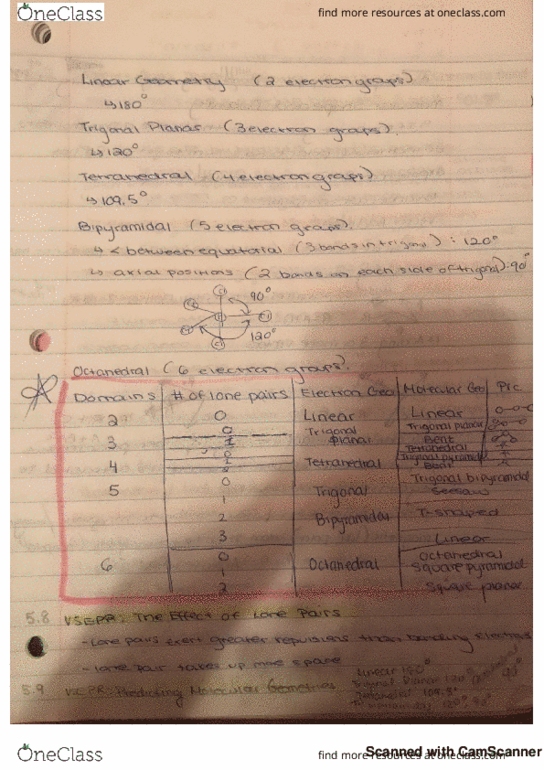 OneClass
find more resources at oneclass.com
Linear Geometry (2 electron groups)
↳ 180°
Trigonal Planar (3 electron groups).
↳ 120°
Tetrahedral (4 electron groups)
↳ 109.5°
Bipyramidal (5 electron groups).
↳ < between equatorial (3 bonds in trigonal) : 120°
↳ axial positions (2 bonds on each side of trigonal): 90°
90°
120°
Octahedral (6 electron groups).
Domains # of lone pairs Electron Geo Molecular Geo Pic.
2 0 Linear Linear
3 0 Trigonal planar Trigonal planar
1 Bent
4 0 Tetrahedral Tetrahedral
1 Trigonal pyramidal
2 Bent
5 0 Trigonal Bipyramidal Trigonal bipyramidal
1 Seesaw
2 T-shaped
3 Linear
6 0 Octahedral Octahedral
1 Square pyramidal
2 Square planar
5.8 VSEPR: The Effect of Lone Pairs
- Lone pairs exert greater repulsions than bonding electrons
- lone pair takes up more space
5.9 VSEPR: Predicting Molecular Geometries
Linear 180°
Trigonal Planar 120°
Tetrahedral 109.5°
120°, 90°
90°
OneClass
find more resources at oneclass.com
Scanned with CamScanner